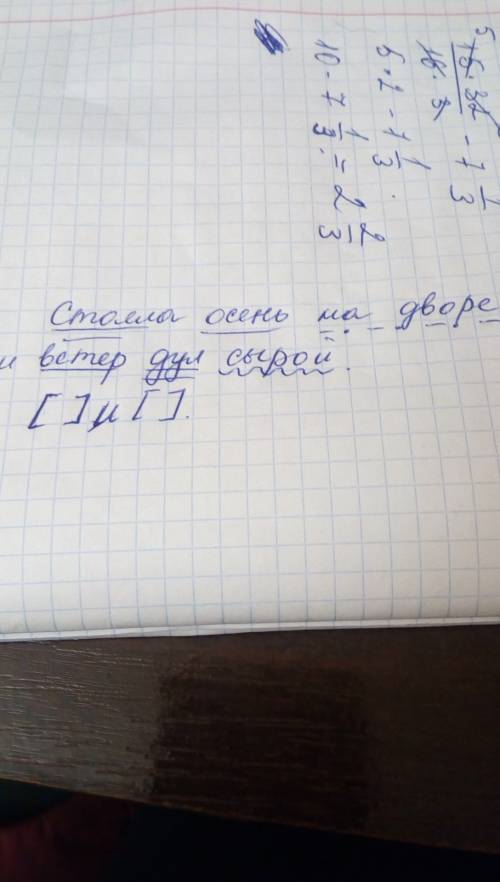 5
15 · 32 - 7 1/3
16 · 3
5 · 2 - 7 1/3 .
10 - 7 1/3 = 2 2/3
Стояла осень на дворе
и ветер дул сырой.
[ ] и [ ].